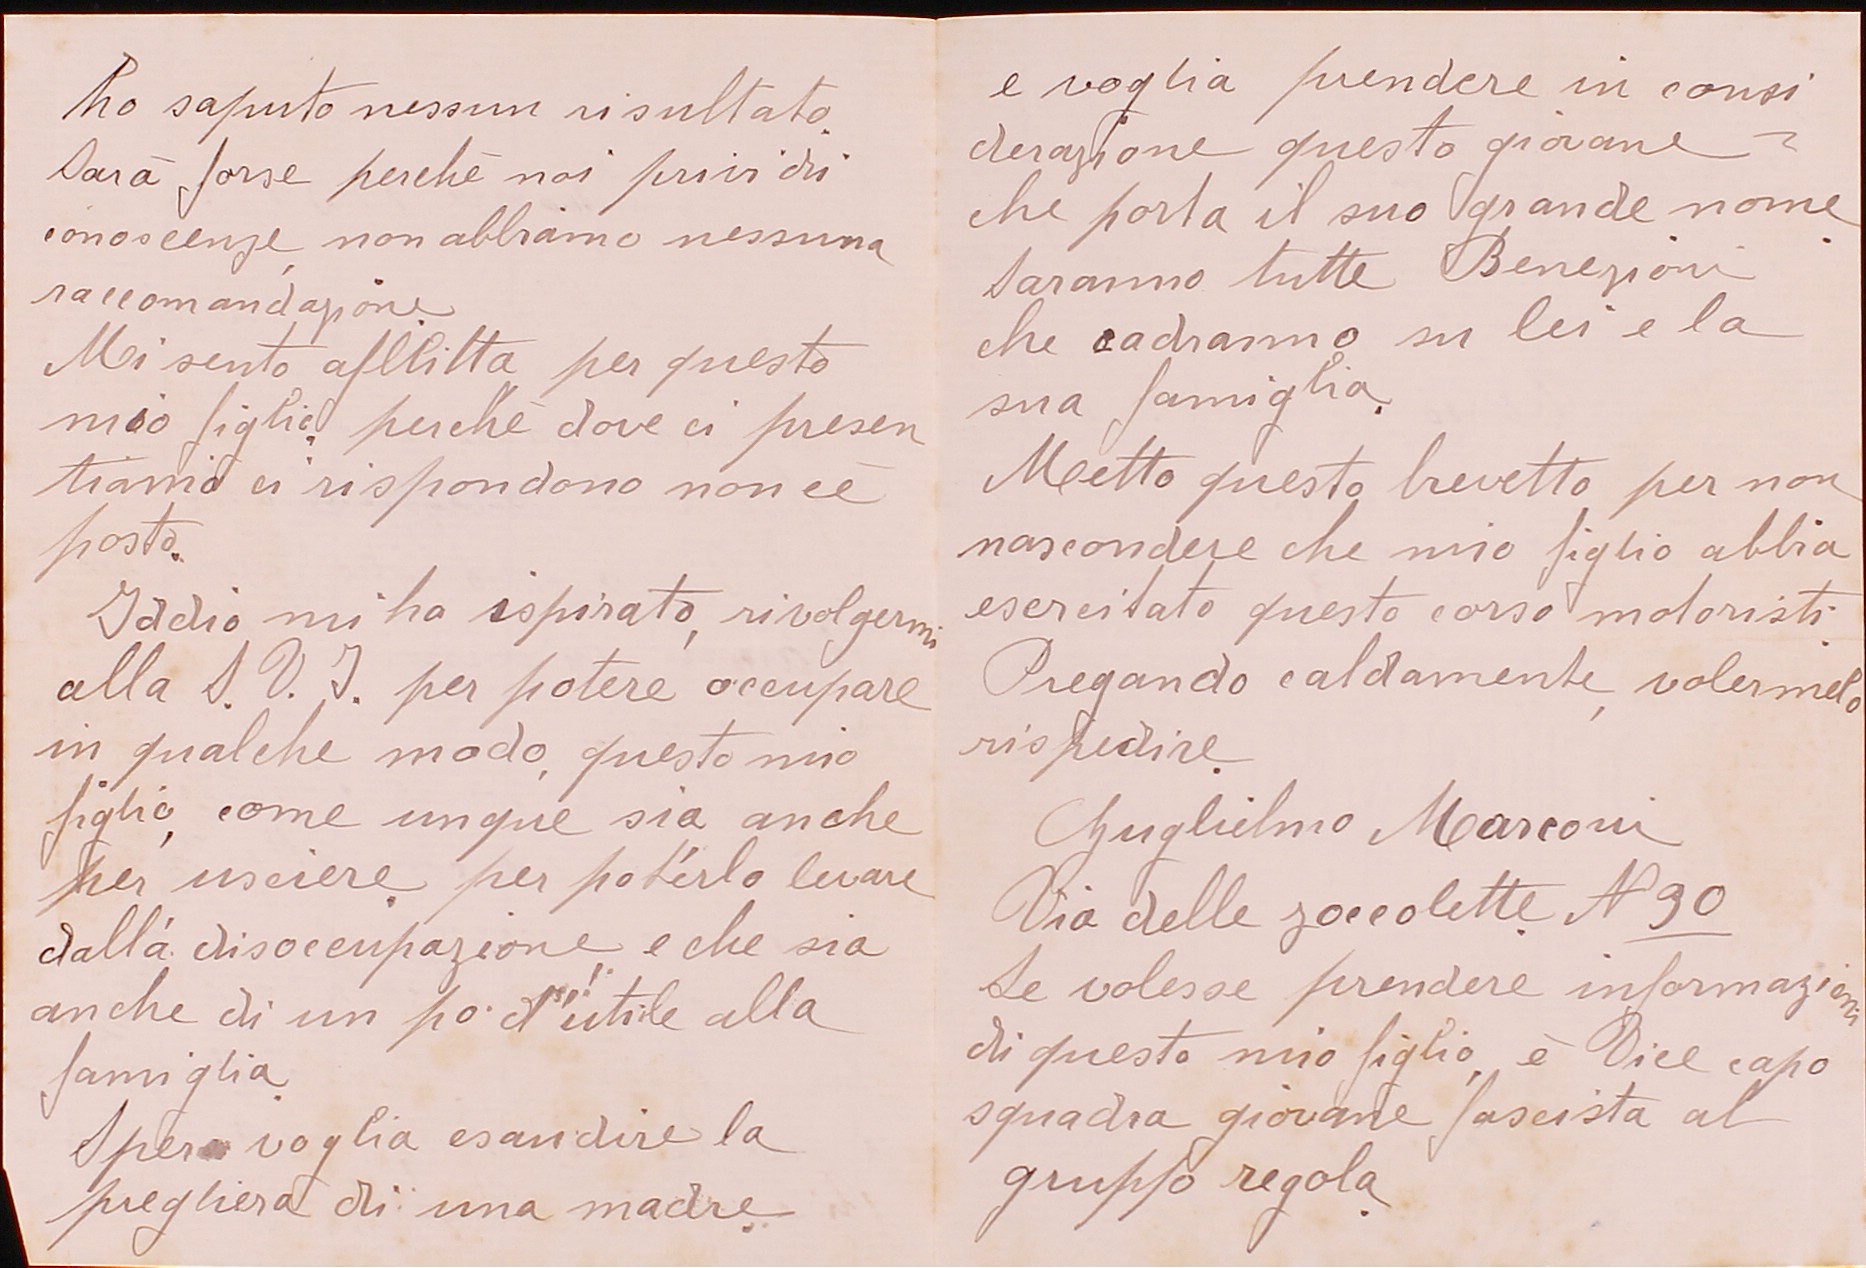 ho saputo nessun risultato.
Sarà forse perchè noi privi di
conoscenze, non abbiamo nessuna
raccomandazione.
Mi sento afllitta per questo
mio figlio, perchè dove ci presen
tiamo ci rispondono non cè
posto.
Iddio mi ha ispirato, rivolgermi
alla S. V. I. per potere occupare
in qualche modo, questo mio
figlio, come unque sia anche
per usciere, per poterlo levare
dalla disoccupazione, e che sia
anche di un po' d'utile alla
famiglia.
Spero voglia esaudire la
pregliera di una madre.
e voglia prendere in consi
derazione questo giovane
che porta il suo grande nome.
Saranno tutte Benezioni
che cadranno su lei e la
sua famiglia.
Metto questo brevetto per non
nascondere che mio figlio abbia
esercitato questo corso motoristi.
Pregando caldamente, volermelo
rispedire.
Guglielmo Marconi
Via delle zoccolette N 30
Se volesse prendere informazioni
di questo mio figlio, è Vice capo
squadra giovane fascista al
gruppo regola.